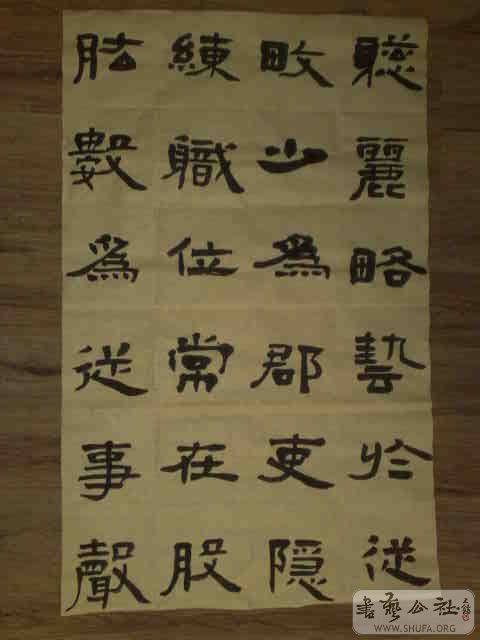 聰麗略藝於從
畋少為郡吏隱
練職位常在股
肱數為從事聲
書藝公社
WWW.SHUFA.ORG